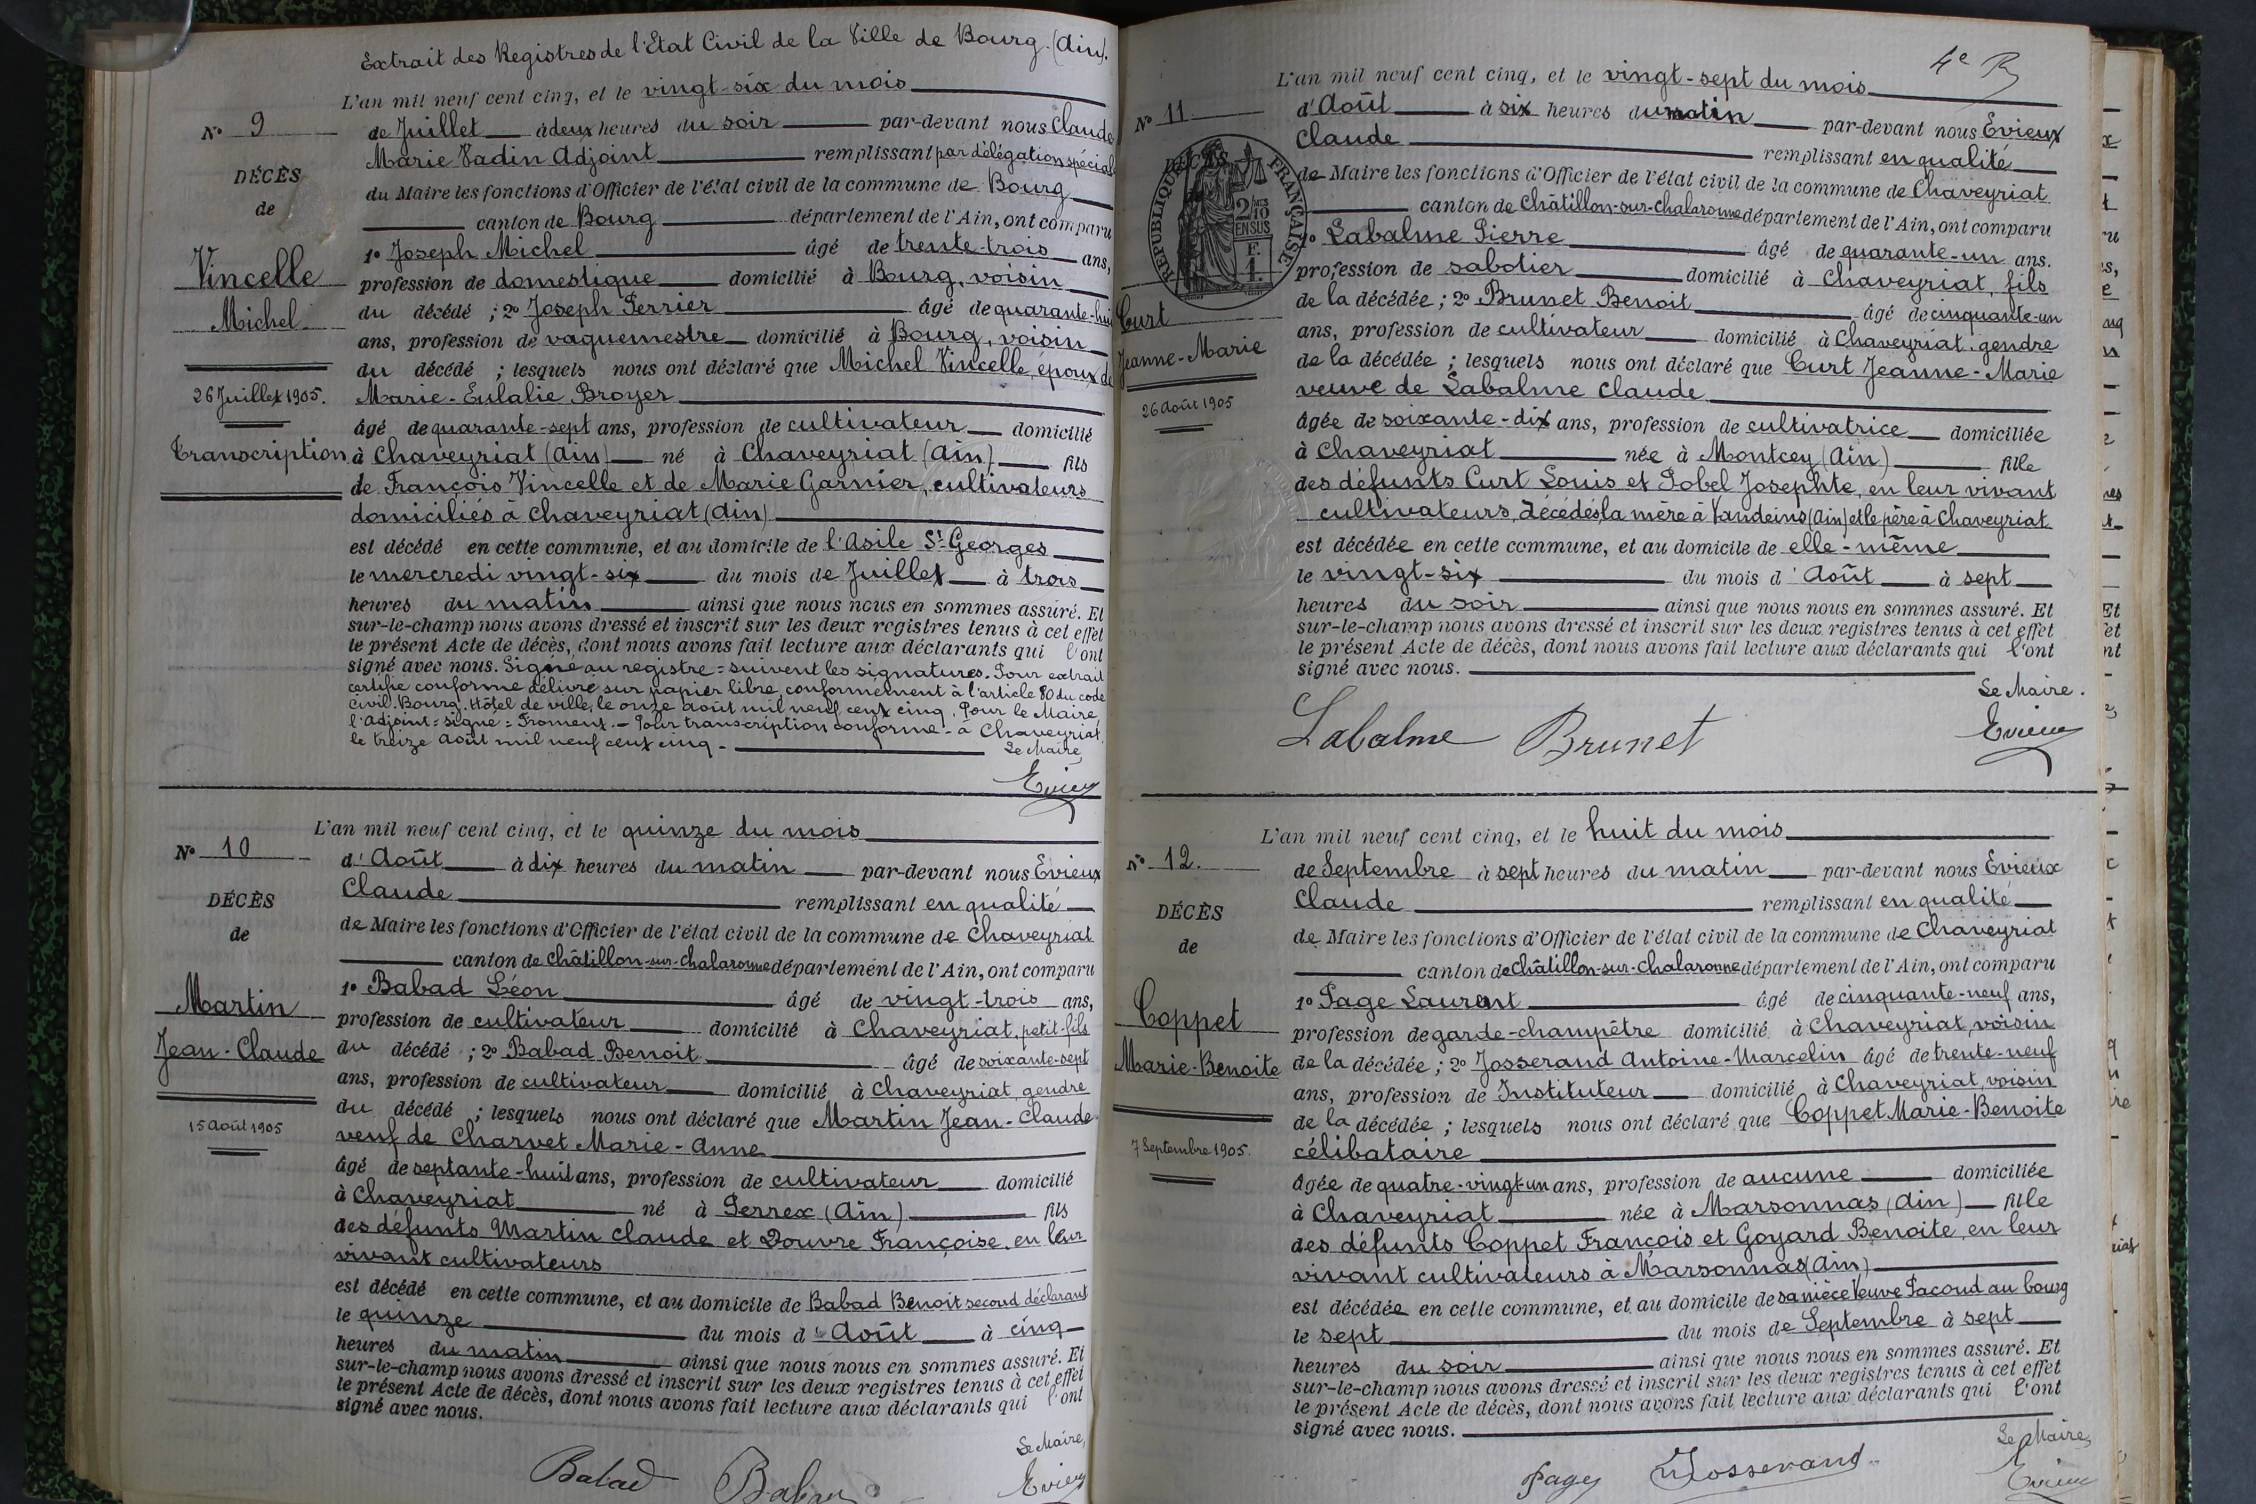 Extrait des Registres de l'Etat Civil de la Ville de Bourg. (Ain).
L'an mil neuf cent cinq, et le vingt-six du mois
N° 9
de Juillet à deux heures du soir par-devant nous Claude
Marie Vadin Adjoint remplissant par délégation spécial
DÉCÈS
du Maire les fonctions d'Officier de l'état civil de la commune de Bourg
de
canton de Bourg département de l'Ain, ont comparu
1° Joseph Michel âgé de trente-trois ans,
Vincelle
profession de domestique domicilié à Bourg, voisin
Michel
du décédé ; 2° Joseph Perrier âgé de quarante-hui
ans, profession de vaguemestre domicilié à Bourg, voisin
du décédé ; lesquels nous ont déclaré que Michel Vincelle, époux de
26 Juillet 1905.
Marie-Eulalie Broyer
âgé de quarante-sept ans, profession de cultivateur domicilié
Transcription
à Chaveyriat (Ain) né à Chaveyriat (Ain) fils
de François Vincelle et de Marie Garnier, cultivateurs
domiciliés à Chaveyriat (Ain)
est décédé en cette commune, et au domicile de l'Asile St Georges
le mercredi vingt-six du mois de Juillet à trois
heures du matin ainsi que nous nous en sommes assuré. Et
sur-le-champ nous avons dressé et inscrit sur les deux registres tenus à cet effet
le présent Acte de décès, dont nous avons fait lecture aux déclarants qui l'ont
signé avec nous. Signé au registre = suivent les signatures. Pour extrait
certifié conforme délivré sur papier libre, conformément à l'article 80 du code
civil. Bourg. Hôtel de ville, le onze août mil neuf cent cinq. Pour le Maire,
l'Adjoint = signé = Froment. - Pour transcription conforme - à Chaveyriat,
le treize Août mil neuf cent cinq -
Le Maire
Evieux
L'an mil neuf cent cinq, et le quinze du mois
N° 10
d'Août à dix heures du matin par-devant nous Evieux
Claude remplissant en qualité
DÉCÈS
de Maire les fonctions d'Officier de l'état civil de la commune de Chaveyriat
de
canton de Châtillon-sur-Chalaronne département de l'Ain, ont comparu
Martin
1° Babad Léon âgé de vingt-trois ans,
profession de cultivateur domicilié à Chaveyriat, petit-fils
Jean-Claude
du décédé ; 2° Babad Benoit âgé de soixante-sept
ans, profession de cultivateur domicilié à Chaveyriat, gendre
du décédé ; lesquels nous ont déclaré que Martin Jean-Claude
15 Août 1905
veuf de Charvet Marie-Anne
âgé de septante-huit ans, profession de cultivateur domicilié
à Chaveyriat né à Perrex (Ain) fils
des défunts Martin Claude et Douvre Françoise, en leur
vivant cultivateurs
est décédé en cette commune, et au domicile de Babad Benoit second déclarant
le quinze du mois d'Août à cinq
heures du matin ainsi que nous nous en sommes assuré. Et
sur-le-champ nous avons dressé et inscrit sur les deux registres tenus à cet effet
le présent Acte de décès, dont nous avons fait lecture aux déclarants qui l'ont
signé avec nous.
Le Maire,
Babad Babad Evieux
4e R
L'an mil neuf cent cinq, et le vingt-sept du mois
N° 11
d'Août à six heures du matin par-devant nous Evieux
Claude remplissant en qualité
DÉCÈS
RÉPUBLIQUE FRANÇAISE
2/10 EN SUS
F. 1
de Maire les fonctions d'Officier de l'état civil de la commune de Chaveyriat
canton de Châtillon-sur-Chalaronne département de l'Ain, ont comparu
1° Labalme Pierre âgé de quarante-un ans.
profession de sabotier domicilié à Chaveyriat, fils
Curt
de la décédée ; 2° Brunet Benoit âgé de cinquante-un
Jeanne-Marie
ans, profession de cultivateur domicilié à Chaveyriat, gendre
de la décédée ; lesquels nous ont déclaré que Curt Jeanne-Marie
26 Août 1905
veuve de Labalme Claude
âgée de soixante-dix ans, profession de cultivatrice domiciliée
à Chaveyriat née à Montcey (Ain) fille
des défunts Curt Louis et Pobel Josephte, en leur vivant
cultivateurs, décédés, la mère à Vandeins (Ain) et le père à Chaveyriat
est décédée en cette commune, et au domicile de elle-même
le vingt-six du mois d'Août à sept
heures du soir ainsi que nous nous en sommes assuré. Et
sur-le-champ nous avons dressé et inscrit sur les deux registres tenus à cet effet
le présent Acte de décès, dont nous avons fait lecture aux déclarants qui l'ont
signé avec nous.
Le Maire.
Labalme Brunet Evieux
L'an mil neuf cent cinq, et le huit du mois
N° 12.
de Septembre à sept heures du matin par-devant nous Evieux
Claude remplissant en qualité
DÉCÈS
de Maire les fonctions d'Officier de l'état civil de la commune de Chaveyriat
de
canton de Châtillon-sur-Chalaronne département de l'Ain, ont comparu
1° Page Laurent âgé de cinquante-neuf ans,
Coppet
profession de garde-champêtre domicilié à Chaveyriat, voisin
Marie-Benoite
de la décédée ; 2° Josserand Antoine-Marcelin âgé de trente-neuf
ans, profession de Instituteur domicilié à Chaveyriat, voisin
de la décédée ; lesquels nous ont déclaré que Coppet Marie-Benoite
7 Septembre 1905.
célibataire
âgée de quatre-vingt-un ans, profession de aucune domiciliée
à Chaveyriat née à Marsonnas (Ain) fille
des défunts Coppet François et Goyard Benoite, en leur
vivant cultivateurs à Marsonnas (Ain)
est décédée en cette commune, et au domicile de sa nièce Veuve Pacoud au bourg
le sept du mois de Septembre à sept
heures du soir ainsi que nous nous en sommes assuré. Et
sur-le-champ nous avons dressé et inscrit sur les deux registres tenus à cet effet
le présent Acte de décès, dont nous avons fait lecture aux déclarants qui l'ont
signé avec nous.
Le Maire,
Page Josserand Evieux